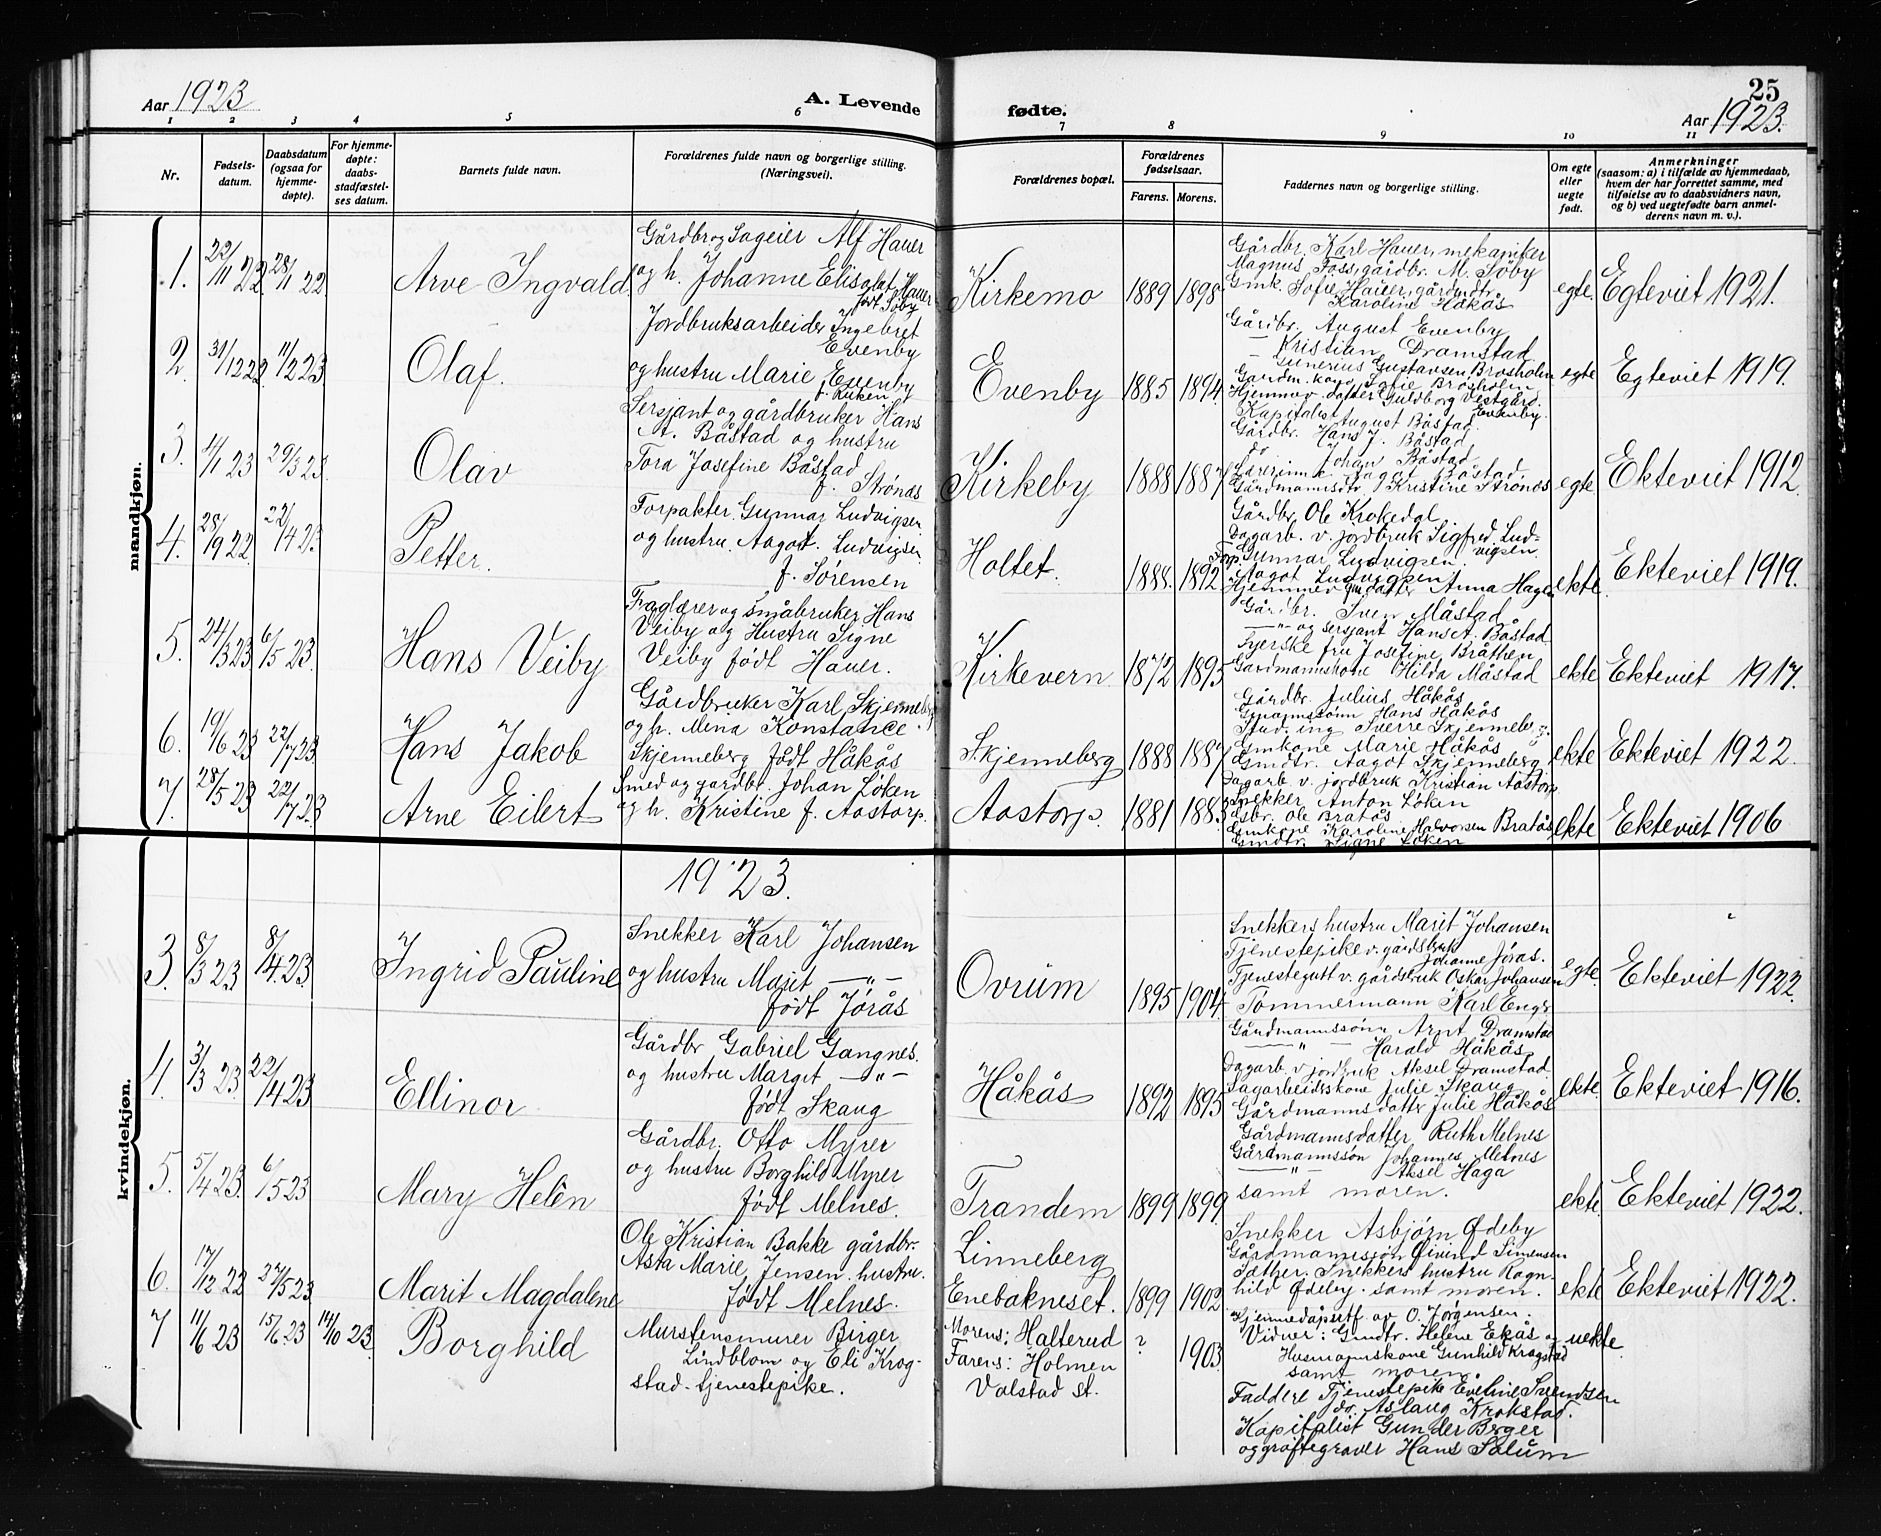 25
Aar 1923
A. Levende
fødte.
Aar 1923.
1 2 3 4 5 6 7 8 9 10 11
Nr.
Fødsels-
datum.
Daabsdatum
(ogsaa for
hjemme-
døpte).
For hjemme-
døpte:
daabs-
stadfæstel-
ses datum.
Barnets fulde navn.
Forældrenes fulde navn og borgerlige stilling.
(Næringsvei).
Forældrenes bopæl.
Forældrenes
fødselsaar.
Farens. Morens.
Faddernes navn og borgerlige stilling.
Om egte
eller
uegte
født.
Anmerkninger
(saasom: a) i tilfælde av hjemmedaab,
hvem der har forrettet samme, med
tilføielse av to daabsvidners navn,
og b) ved uegtefødte barn anmel-
derens navn m. v.).
mandkjøn.
1. 22/11 22. 28/1 22. Arve Ingvald.
Gårdbr og Sageier Alf Hauer
og h. Johanne Elisabet Hauer
født Soby
Kirkemo 1889 1898
Gårdbr. Karl Hauer, mekaniker
Magnus Foss, gårdbr. M. Soby
Gmk. Sofie Hauer, gårdmdtr.
Karoline Håkås
egte. Egteviet 1921.
2. 31/12 22 11/2 23 Olaf.
Jordbruksarbeider Ingebret
Evenby
og hustru Marie Evenby
f. Ruken
Evenby 1885 1894
Gårdbr. August Evenby
— Kristian Dramstad
Gunerius Gustavsen Brosholm
Gaardm. kone Sofie Brosholm
Hjemmev. datter Guldborg Vestgård.
Evenby.
egte Egteviet 1919.
3. 4/1 23 29/3 23. Olav
Sersjant og gårdbruker Hans
A. Båstad og hustru
Tora Josefine Båstad
f. Strønes
Kirkeby 1888 1887
Kapitalist August Båstad.
Gårdbr. Hans J. Båstad
do Johan Båstad
Lærerinne Aagot Båstad
Gårdmannsdtr. Kristine Strønes
egte Ekteviet 1912.
4. 28/9 22 22/4 23. Petter.
Forpakter Gunnar Ludvigsen
og hustru Aagot. Ludvigsen
f. Sørensen
Holtet. 1888. 1892
Gårdbr. Ole Krokedal
Dagarb. v. jordbruk Sigfred Lud-
vigsen.
Forp. Gunnar Ludvigsen
Aagot Ludvigsen
Hjemmev. gm. datter Anna Hagen
ekte. Ekteviet 1919.
5. 24/3 23 6/5 23. Hans Veiby
Faglærer og småbruker Hans
Veiby og Hustru Signe
Veiby født Hauer.
Kirkevern 1872 1895
Gårdbr. Sven Måstad
—"— og sersjant Hans A. Båstad.
Syerske fru Josefine Bråthen
Gårdmannskone Hilda Måstad
ekte Ekteviet 1917.
6. 19/6 23 22/7 23 Hans Jakob
Gårdbruker Karl Skjenneberg
og h. Mina Konstance
Skjenneberg født Håkås
Skjenneberg 1888 1887
Gårdbr. Julius Håkås
Gmannssønn Hans Håkås
Stud. ing. Sverre Skjenneberg.
Gmkone Marie Håkås
Gmdtr. Aagot Skjenneberg
ekte Ekteviet 1922.
7. 28/5 23 22/7 23 Arne Eilert
Smed og gardbr. Johan Løken
og h. Kristine f. Aastorp.
Aastorp. 1881 1883
Dagarb. v. jordbruk Kristian Aastorp
Snekker Anton Løken
Gbr. Ole Bratås
Gmkone Karoline Halvorsen Bratås
Gmdtr. Signe Løken
ekte Ekteviet 1906
1923.
kvindekjøn.
3. 8/3 23 8/4 23 Ingrid Pauline
Snekker Karl Johansen
og hustru Marit —"—
født Jørås
Ovrum 1895 1904.
Snekkers hustru Marit Johansen
Tjenestepike v. gårdsbruk
Johanne Jørås.
Tjenestegutt v. gårdsbruk Oskar Johansen
Tømmermann Karl Enger
egte. Ekteviet 1922.
4. 3/3 23 22/4 23 Ellinor
Gårdbr Gabriel Gangnes.
og hustru Margit —"—
født Skaug
Håkås 1892 1895
Gårdmannssønn Arnt Dramstad
—"— Harald Håkås.
Dagarb v jordbruk Aksel Dramstad
Dagarbeiderskone Julie Skaug
Gårdmannsdatter Julie Håkås
ekte. Ekteviet 1916.
5. 5/4 23. 6/5 23 Mary Helèn
Gårdbr. Otto Myrer
og hustru Borghild Myrer
født Melnes.
Trandem 1899 1899
Gårdmannsdatter Ruth Melnes
Gårdmannssøn Johannes Melnes
—"— Aksel Haga
samt moren.
ekte. Ekteviet 1922.
6. 17/12 22 27/5 23 Marit Magdalene
Ole Kristian Bakke gårdbr.
Asta Marie Jensen hustru.
født Melnes.
Linneberg
Enebakneset. 1899 1902
Snekker Asbjørn Ødeby
Gårdmannssøn Øivind Simensen
Sæther. Snekkers hustru Ragn-
hild Ødeby. samt moren.
ekte Ekteviet 1922.
7 11/6 23 15/6 23 14/10 23. Borghild
Murstensmurer Birger
Lindblom og Eli Krog-
stad. tjenestepike.
Morens: Halterud
Farens: Holmen
Valstad st.
? 1903
Hjemmedøpt av O. Jørgensen.
Vidner: Gmdtr. Helene Ekås og
Husmannskone Gunhild Krogstad
samt moren.
Faddere Tjenestepike Eveline Svendsen
do. Aslaug Krokstad.
Kapitalist Gunder Berger
og grøftegraver Hans Solum
uekte.